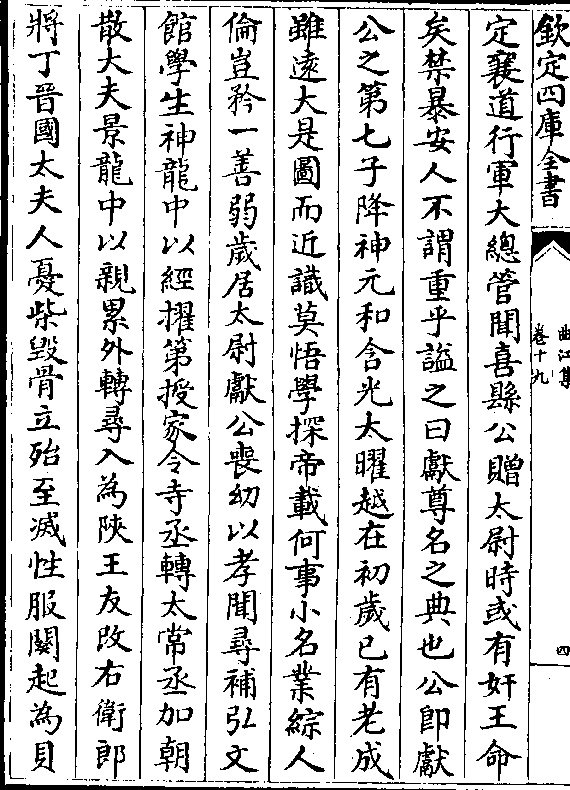 欽定四庫全書
曲江集
卷十九
四
定襄道行軍大總管聞喜縣公贈太尉時或有奸王命
矣禁暴安人不謂重乎謚之曰獻尊名之典也公即獻
公之第七子降神元和含光太曜越在初歲已有老成
雖遠大是圖而近識莫悟學探帝載何事小名業綜人
倫豈矜一善弱歲居太尉獻公喪幼以孝聞尋補弘文
館學生神龍中以經擢第授家令寺丞轉太常丞加朝
散大夫景龍中以親累外轉尋入為陝王友改右衛郎
將丁晉國太夫人憂柴毀骨立殆至滅性服闋起為貝